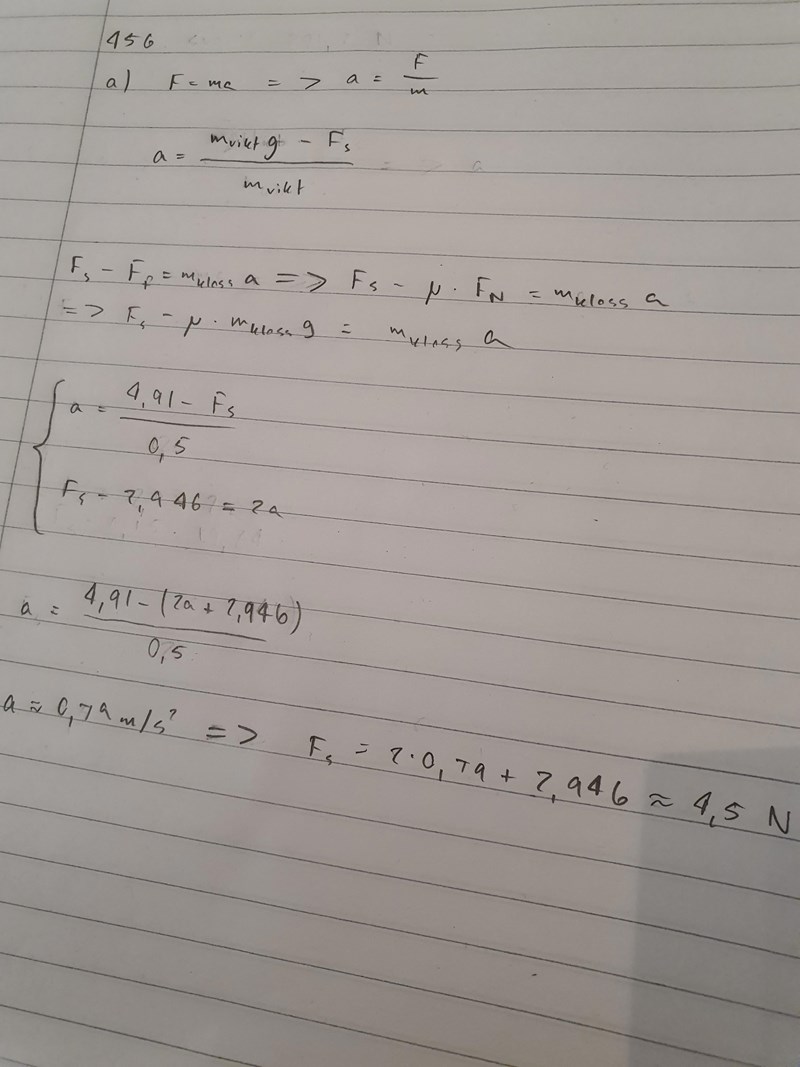 456
a) F = ma => a = F/m
a = (m_vikt g - F_s)/m_vikt
F_s - F_f = m_kloss a => F_s - μ · F_N = m_kloss a
=> F_s - μ · m_kloss g = m_kloss a
{ a = (4,91 - F_s)/0,5
F_s - 2,946 = 2a
a = (4,91 - (2a + 2,946))/0,5
a ≈ 0,79 m/s² => F_s = 2·0,79 + 2,946 ≈ 4,5 N